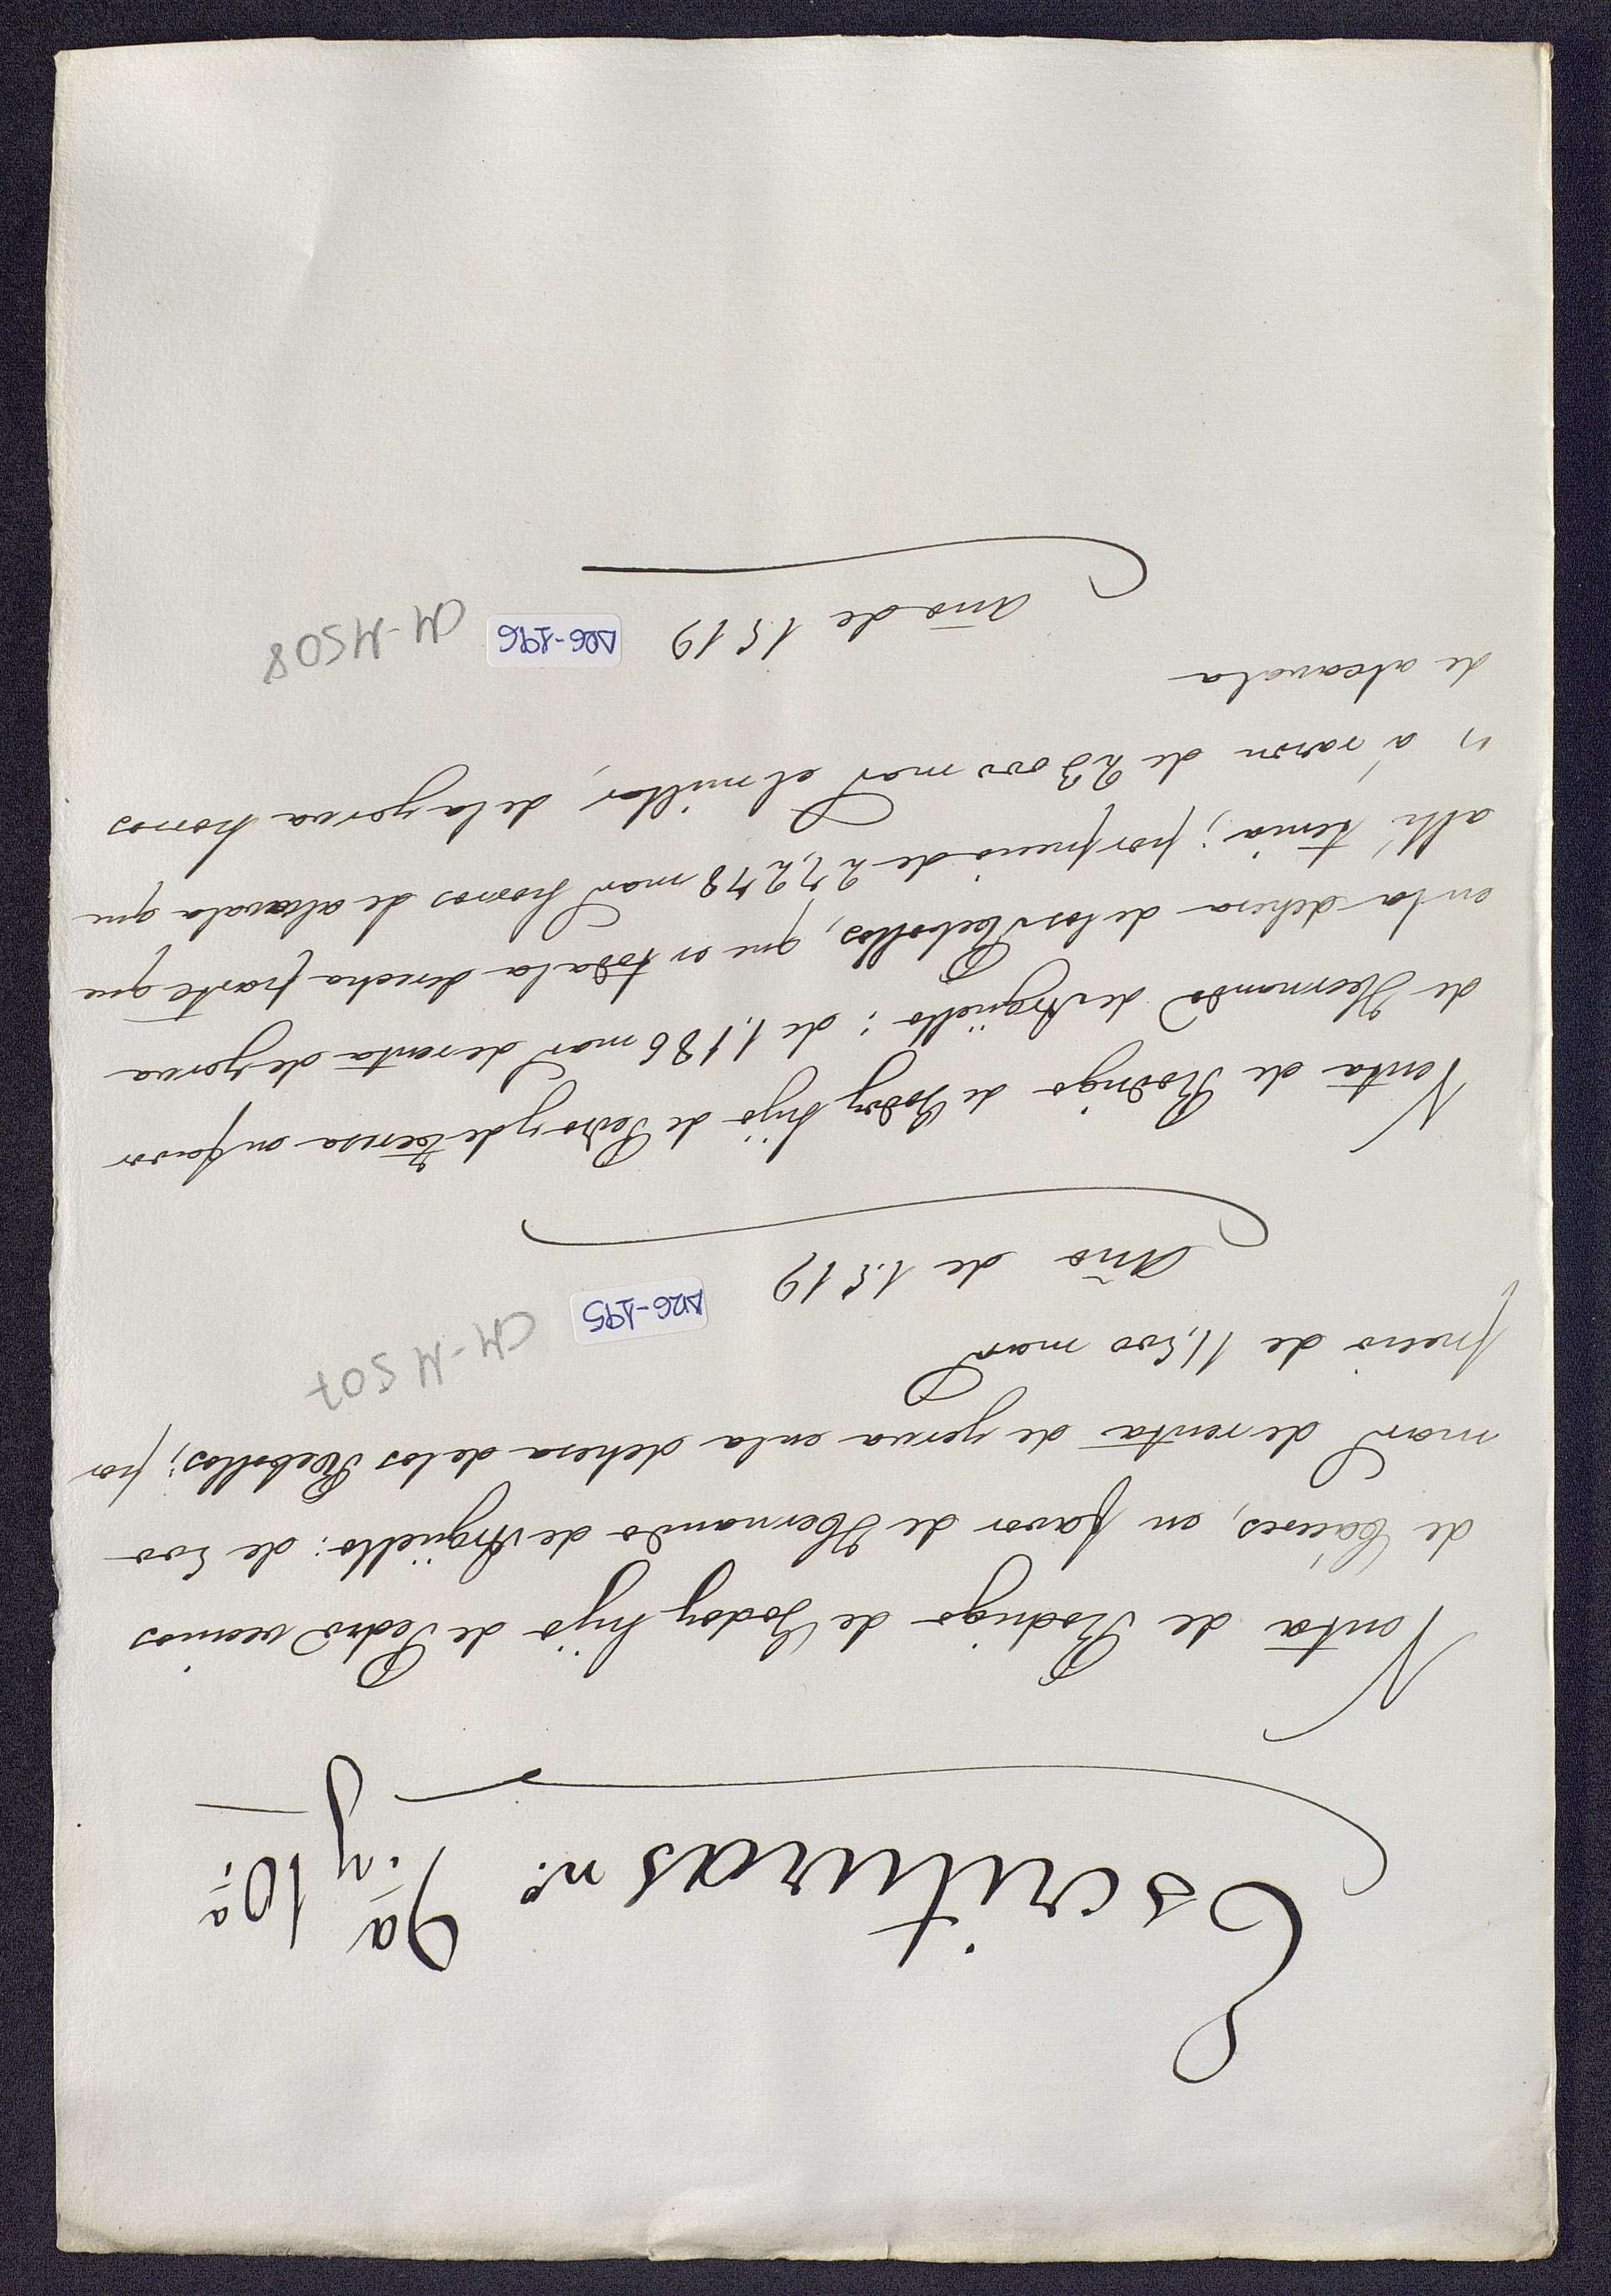 Escrituras nº 9ª y 10ª
Venta de Rodrigo de Godoy hijo de Pedro vecinos
de Cáceres, en favor de Hernando de Argüello: de 500
marˢ de renta de yerva en la dehesa de los Rebollos; por
precio de 11,500 marˢ
Año de 1519
A26-195
CM-M 507
Venta de Rodrigo de Godoy hijo de Pedro y de Teresa en favor
de Hernando de Argüello: de 1,186 marˢ de renta de yerva
en la dehesa de los Rebollos, que es toda la derecha parte que
allí tenia; por precio de 27,278 marˢ horros de alcavala que
es á razon de 23000 marˢ el millar, de la yerva horros
de alcavala
Año de 1519
A26-196
CM-M508